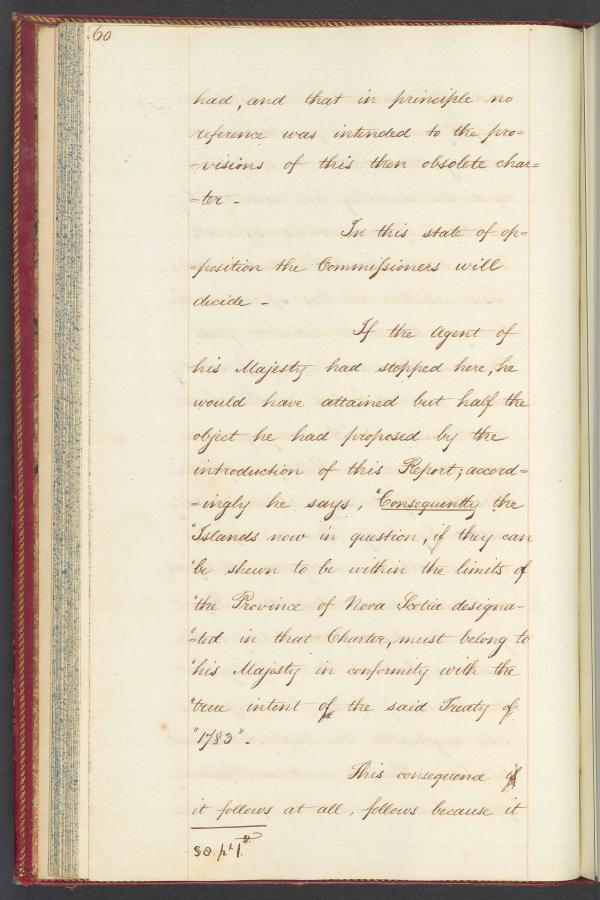 60
had, and that in principle no
reference was intended to the pro=
=visions of this then obsolete char=
=ter -
In this state of op=
=position the Commissioners will
decide -
If the Agent of
his Majesty had stopped here, he
would have attained but half the
object he had proposed by the
introduction of this Report; accord=
=ingly he says, "Consequently the
"Islands now in question, if they can
"be shewn to be within the limits of
"the Province of Nova Scotia designa-
"=ted in that Charter, must belong to
"his Majesty in conformity with the
"true intent of the said Treaty of
"1783".
This consequence if
it follows at all, follows because it